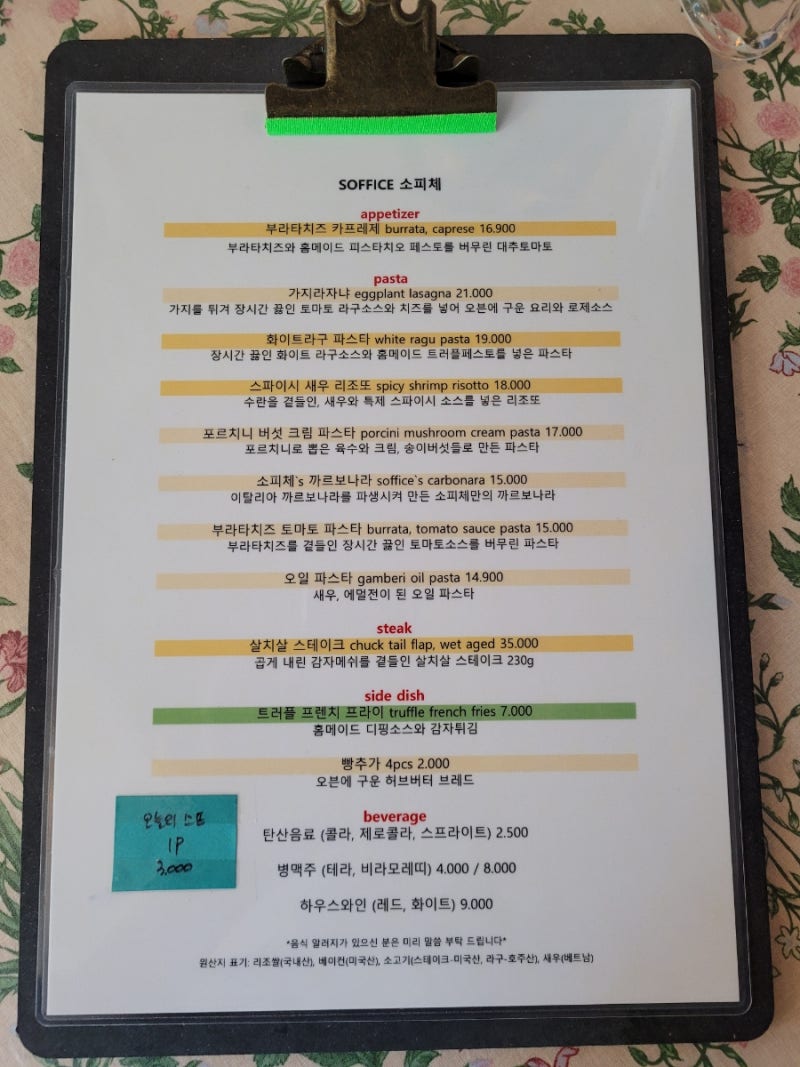 SOFFICE 소피체
appetizer
부라타치즈 카프레제 burrata, caprese 16.900
부라타치즈와 홈메이드 피스타치오 페스토를 버무린 대추토마토
pasta
가지라자냐 eggplant lasagna 21.000
가지를 튀겨 장시간 끓인 토마토 라구소스와 치즈를 넣어 오븐에 구운 요리와 로제소스
화이트라구 파스타 white ragu pasta 19.000
장시간 끓인 화이트 라구소스와 홈메이드 트러플페스토를 넣은 파스타
스파이시 새우 리조또 spicy shrimp risotto 18.000
수란을 곁들인, 새우와 특제 스파이시 소스를 넣은 리조또
포르치니 버섯 크림 파스타 porcini mushroom cream pasta 17.000
포르치니로 뽑은 육수와 크림, 송이버섯들로 만든 파스타
소피체`s 까르보나라 soffice`s carbonara 15.000
이탈리아 까르보나라를 파생시켜 만든 소피체만의 까르보나라
부라타치즈 토마토 파스타 burrata, tomato sauce pasta 15.000
부라타치즈를 곁들인 장시간 끓인 토마토소스를 버무린 파스타
오일 파스타 gamberi oil pasta 14.900
새우, 에멀전이 된 오일 파스타
steak
살치살 스테이크 chuck tail flap, wet aged 35.000
곱게 내린 감자메쉬를 곁들인 살치살 스테이크 230g
side dish
트러플 프렌치 프라이 truffle french fries 7.000
홈메이드 디핑소스와 감자튀김
빵추가 4pcs 2.000
오븐에 구운 허브버터 브레드
beverage
탄산음료 (콜라, 제로콜라, 스프라이트) 2.500
병맥주 (테라, 비라모레띠) 4.000 / 8.000
하우스와인 (레드, 화이트) 9.000
오늘의 스프
1P
3,000
*음식 알러지가 있으신 분은 미리 말씀 부탁 드립니다*
원산지 표기: 리조쌀(국내산), 베이컨(미국산), 소고기(스테이크-미국산, 라구-호주산), 새우(베트남)